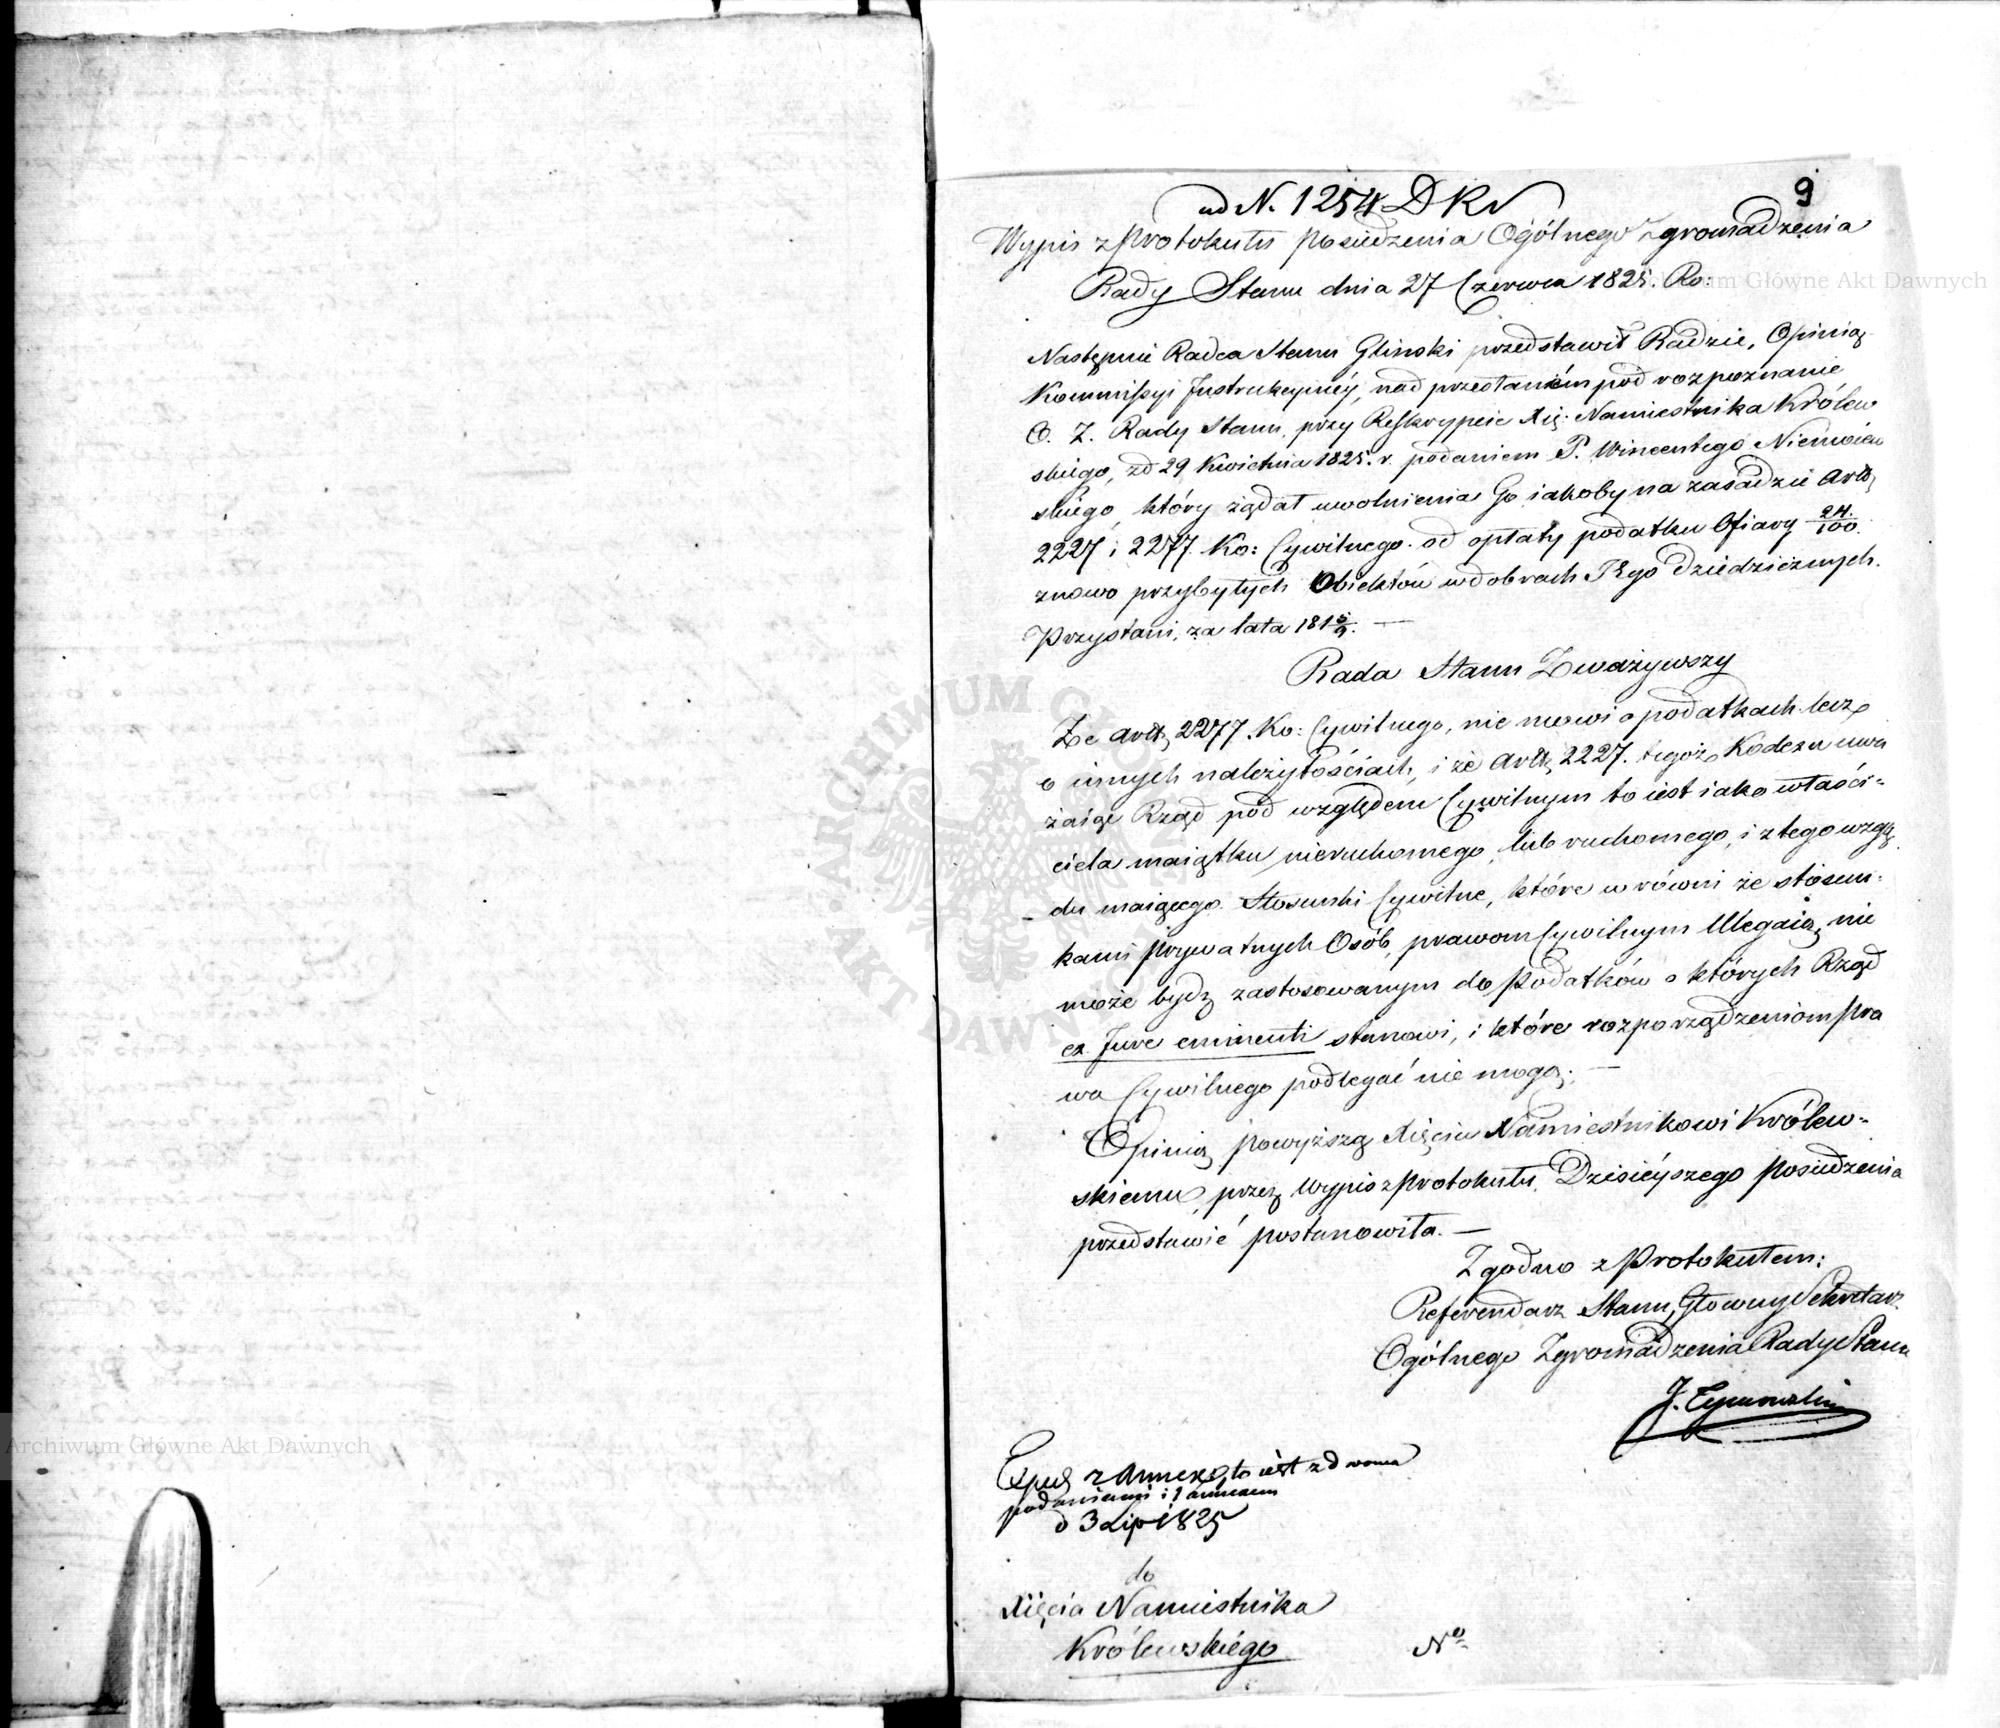 ad N. 1254 D K
9
Wypis z Protokułu posiedzenia Ogólnego Zgromadzenia
Rady Stanu dnia 27 Czerwca 1825. Ro:
Następnie Radca Stanu Gliński przedstawił Radzie, Opinią
Kommissyi Instrukcyiney, nad przesłaniem pod rozpoznanie
O. Z. Rady Stanu, przy Reskrypcie Xię: Namiestnika Królew
skiego, zd 29 Kwietnia 1825. r. podaniem P. Wincentego Niemoiew
skiego, który żądał uwolnienia Go iakoby na zasadzie Artt,
2227 i 2277. Ko: Cywilnego. od opłaty podatku Ofiary 24/100.
znowo przybyłych Obiektów w dobrach Tego dziedzicznych.
Przystani, za lata 181
Rada Stanu Zważywszy
Że Artt, 2277. Ko: Cywilnego, nie mowi o podatkach lecz
o innych należytościach, i że Artt, 2227. tegoż Kodexu uwa
żaiąc Rząd pod względem Cywilnym to iest iako właści=
ciela maiątku nieruchomego, lub ruchomego, i z tego wzglę
du maiącego Stosunki Cywilne, które w równi ze stosun=
kami prywatnych Osób, prawom Cywilnym Ulegaią, nie
może bydź zastosowanym do Podatków o których Rząd
ex Jure eminenti stanowi, i które rozporządzeniom pra
wa Cywilnego podlegać nie mogą; —
Opinią powyższą Xięciu Namiestnikowi Królew=
skiemu, przez Wypis z Protokułu Dzisieyszego posiedzenia
przedstawić postanowiła. —
Zgodno z Protokułem:
Referendarz Stanu, Głowny Sekretarz
Ogólnego Zgromadzenia Rady Stanu
J. Tymowski
Exped z Annexą, to iest z dwoma
podaniami i 1 annexem
d 3 Lip 1825
do
Xięcia Namiestnika
Królewskiego
No
Archiwum Główne Akt Dawnych
Archiwum Główne Akt Dawnych
ARCHIWUM GŁÓWNE AKT DAWNYCH